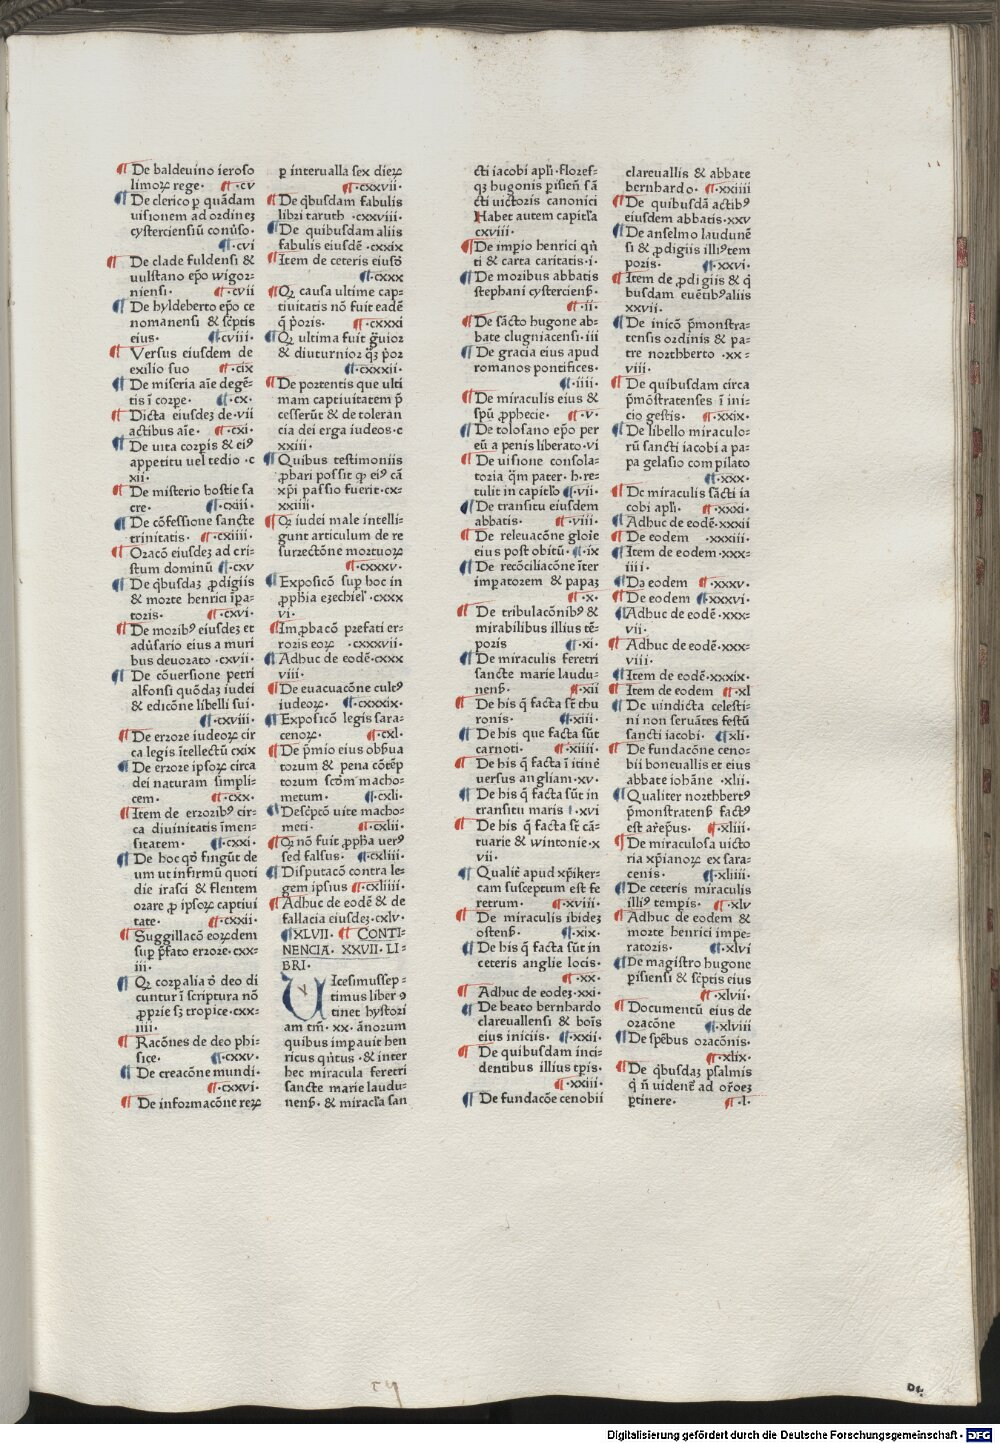 De baldeuino ieroso
limoꝝ rege· ¶·cv
¶De clerico ꝑ quādam
uisionem ad ordineꝫ
cysterciensiū conūso·
¶·cvi
¶De clade fuldensi &
uulstano eṗo wigor⸗
niensi· ¶·cvii
¶De hyldeberto eṗo ce
nomanensi & scṗtis
eius· ¶cviii·
¶Versus eiusdem de
exilio suo ¶·cix
¶De miseria aīe degē⸗
tis ī corpe· ¶·cx·
¶Dicta eiusdeꝫ de·vii
actibus aīe· ¶·cxi·
¶De uita corꝑis & eiꝰ
appetitu uel tedio ·c
xii·
¶De misterio hostie sa
cre· ¶·cxiii·
¶De cōfessione sancte
trinitatis· ¶·cxiiii·
¶Oracō eiusdeꝫ ad cri⸗
stum dominū ¶·cxv
¶De q̇busdaꝫ ꝓdigiis
& morte henrici īpa⸗
toris· ¶·cxvi·
¶De moribꝰ eiusdeꝫ et
adūsario eius a muri
bus deuorato ·cxvii·
¶De cōuersione petri
alfonsi quōdaꝫ iudei
& edicōne libelli sui·
¶·cxviii·
¶De errore iudeoꝝ cir
ca legis ītellectū cxix
¶De errore ipsoꝝ circa
dei naturam simpli⸗
cem· ¶·cxx·
¶Item de erroribꝰ cir⸗
ca diuinitatis īmen⸗
sitatem· ¶·cxxi·
¶De hoc qđ fingūt de
um ut infirmū quoti
die irasci & flentem
orare ꝓ ipsoꝝ captiui
tate· ¶·cxxii·
¶Suggillacō eorꝝdem
suꝑ p̄fato errore·cxx⸗
iii·
¶Qꝝ corpalia đ deo di
cuntur ī scriptura nō
ꝓprie sꝫ tropice·cxx⸗
iiii·
¶Racōnes de deo phi⸗
sice· ¶·cxxv·
¶De creacōne mundi·
¶·cxxvi·
¶De informacōne reꝝ
ꝑ interualla sex dieꝝ
¶·cxxvii·
¶De q̇busdam fabulis
libri taruth ·cxxviii·
¶De quibusdam aliis
fabulis eiusdē ·cxxix
¶Item de ceteris eiusđ
¶·cxxx
¶Qꝝ causa ultime cap⸗
tiuitatis nō fuit eadē
q̄ p̄oris· ¶·cxxxi
¶Qꝝ ultima fuit g̈uior
& diuturnior q̄ꝫ p̄or
¶·cxxxii·
¶De portentis que ulti
mam captiuitatem p̄
cesserūt & de toleran
cia dei erga iudeos·c
xxiii·
¶Quibus testimoniis
ꝓbari possit qꝫ eiꝰ cā
xṗi passio fuerit·cx⸗
xxiiii·
¶Qꝝ iudei male intelli⸗
gunt articulum de re
surrectōne mortuoꝝ
¶·cxxxv·
¶Exposicō suꝑ hoc in
ꝓpħia ezechieľ ·cxxx
vi·
¶Imꝓbacō prefati er⸗
roris eoꝝ ·cxxxvii·
¶Adhuc de eodē·cxxx
viii·
¶De euacuacōne cultꝰ
iudeoꝝ· ¶·cxxxix·
¶Exposicō legis sara⸗
cenoꝝ· ¶·cxl·
¶De p̄mio eius obẜua
torum & pena cōtēp
torum scđm macho⸗
metum· ¶·cxli·
¶Descṗtō uite macho⸗
meti· ¶·cxlii·
¶Qꝝ nō fuit ꝓpħa uerꝰ
sed falsus· ¶·cxliii·
¶Disputacō contra le⸗
gem ipsius ¶·cxliiii·
¶Adhuc de eodē & de
fallacia eiusdeꝫ·cxlv·
¶XLVII· ¶CONTI⸗
NENCIA· XXVII· LI⸗
BRI·
VIcesimussep⸗
timus liber ꝯ
tinet hystori
am tm̄· xx· ānorum
quibus impauit hen
ricus qn̄tus ·& inter
hec miracula feretri
sancte marie laudu⸗
nenẜ· & miracľa san
cti iacobi apľi·floref⸗
qꝫ hugonis p̄sieñ sā
cti uictoris canonici
Habet autem capitľa
cxviii·
¶De imꝑio henrici qn̄
ti & carta caritatis·i·
¶De moribus abbatis
stephani cysterciensꝭ·
¶·ii·
¶De sācto hugone ab⸗
bate clugniacensi·iii
¶De gracia eius apud
romanos pontifices·
¶·iiii·
¶De miraculis eius &
spū ꝓphecie· ¶·v·
¶De tolosano eṗo per
eū a penis liberato·vi
¶De uisione consola⸗
toria q̄m pater ·h·re⸗
tulit in capitľo ¶·vii·
¶De transitu eiusdem
abbatis· ¶·viii·
¶De releuacōne gloīe
eius post obitū· ¶·ix
¶De recōciliacōne īter
imꝑatorem & papaꝫ
¶·x·
¶De tribulacōnibꝰ &
mirabilibus illius tē⸗
poris ¶·xi·
¶De miraculis feretri
sancte marie laudu⸗
nenẜ· ¶·xii
¶De his q̄ facta sr̄ thu
ronis· ¶·xiii·
¶De his que facta sūt
carnoti· ¶·xiiii·
¶De his q̄ facta ī itinē
uersus angliam·xv·
¶De his q̄ facta sūt in
transitu maris ¶·xvi
¶De his q̄ facta sr̄ cā⸗
tuarie & wintonie·x
vii·
¶Qualiē apud xṗiker⸗
cam susceptum est fe
retrum· ¶·xviii·
¶De miraculis ibideꝫ
ostenẜ· ¶·xix·
¶De his q̄ facta sūt in
ceteris anglie locis·
¶·xx·
¶Adhuc de eodeꝫ·xxi·
¶De beato bernhardo
clareuallensi & boīs
eius iniciis· ¶·xxii·
¶De quibusdam inci⸗
dentibus illius tꝑis·
¶·xxiii·
¶De fundacōe cenobii
clareuallis & abbate
bernhardo· ¶·xxiiii
¶De quibusdā actibꝰ
eiusdem abbatis·xxv
¶De anselmo laudunē
si & ꝓdigiis illiꝰtem
poris· ¶·xxvi·
¶Item de ꝓdigiis & q̇
busdam euētibꝰaliis
xxvii·
¶De inicō p̄monstra⸗
tensis ordinis & pa⸗
tre northberto ·xx⸗
viii·
¶De quibusdam circa
p̄mōstratenses ī ini⸗
cio gestis· ¶·xxix·
¶De libello miraculo⸗
rū sancti iacobi a pa⸗
pa gelasio compilato
¶·xxx·
¶De miraculis sācti ia
cobi apľi· ¶·xxxi·
¶Adhuc de eodē·xxxii
¶De eodem ·xxxiii·
¶Item de eodem·xxx⸗
iiii·
¶Da eodem ¶·xxxv·
¶De eodem ¶·xxxvi·
¶Adhuc de eodē·xxx⸗
vii·
¶Adhuc de eodē·xxx⸗
viii·
¶Item de eodē·xxxix·
¶Item de eodem ¶·xl
¶De uindicta celesti⸗
ni non seruātes festū
sancti iacobi· ¶xli·
¶De fundacōne ceno⸗
bii boneuallis et eius
abbate iohāne ·xlii·
¶Qualiter northbertꝰ
p̄monstratenẜ factꝰ
est ar̄epūs· ¶·xliii·
¶De miraculosa uicto
ria xp̄ianoꝝ ex sara⸗
cenis· ¶·xliiii·
¶De ceteris miraculis
illiꝰ tempis· ¶·xlv
¶Adhuc de eodem &
morte henrici impe⸗
ratoris· ¶·xlvi
¶De magistro hugone
p̄isiensi & scṗtis eius
¶·xlvii·
¶Documentū eius de
oracōne ¶·xlviii
¶De spēbus oracōnis·
¶·xlix·
¶De q̇busdaꝫ psalmis
q̇ n̄ uidenť ad or̄oeꝫ
ꝑtinere· ¶·l·
D4
Digitalisierung gefördert durch die Deutsche Forschungsgemeinschaft · DFG